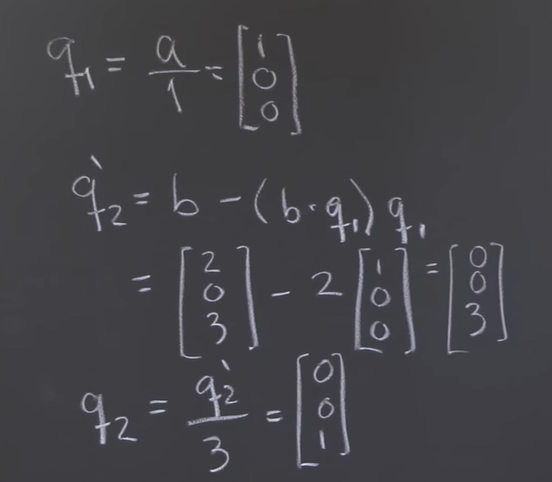 q₁ = a/1 = [1 0 0]
q₂' = b - (b · q₁) q₁
= [2 0 3] - 2 [1 0 0] = [0 0 3]
q₂ = q₂'/3 = [0 0 1]